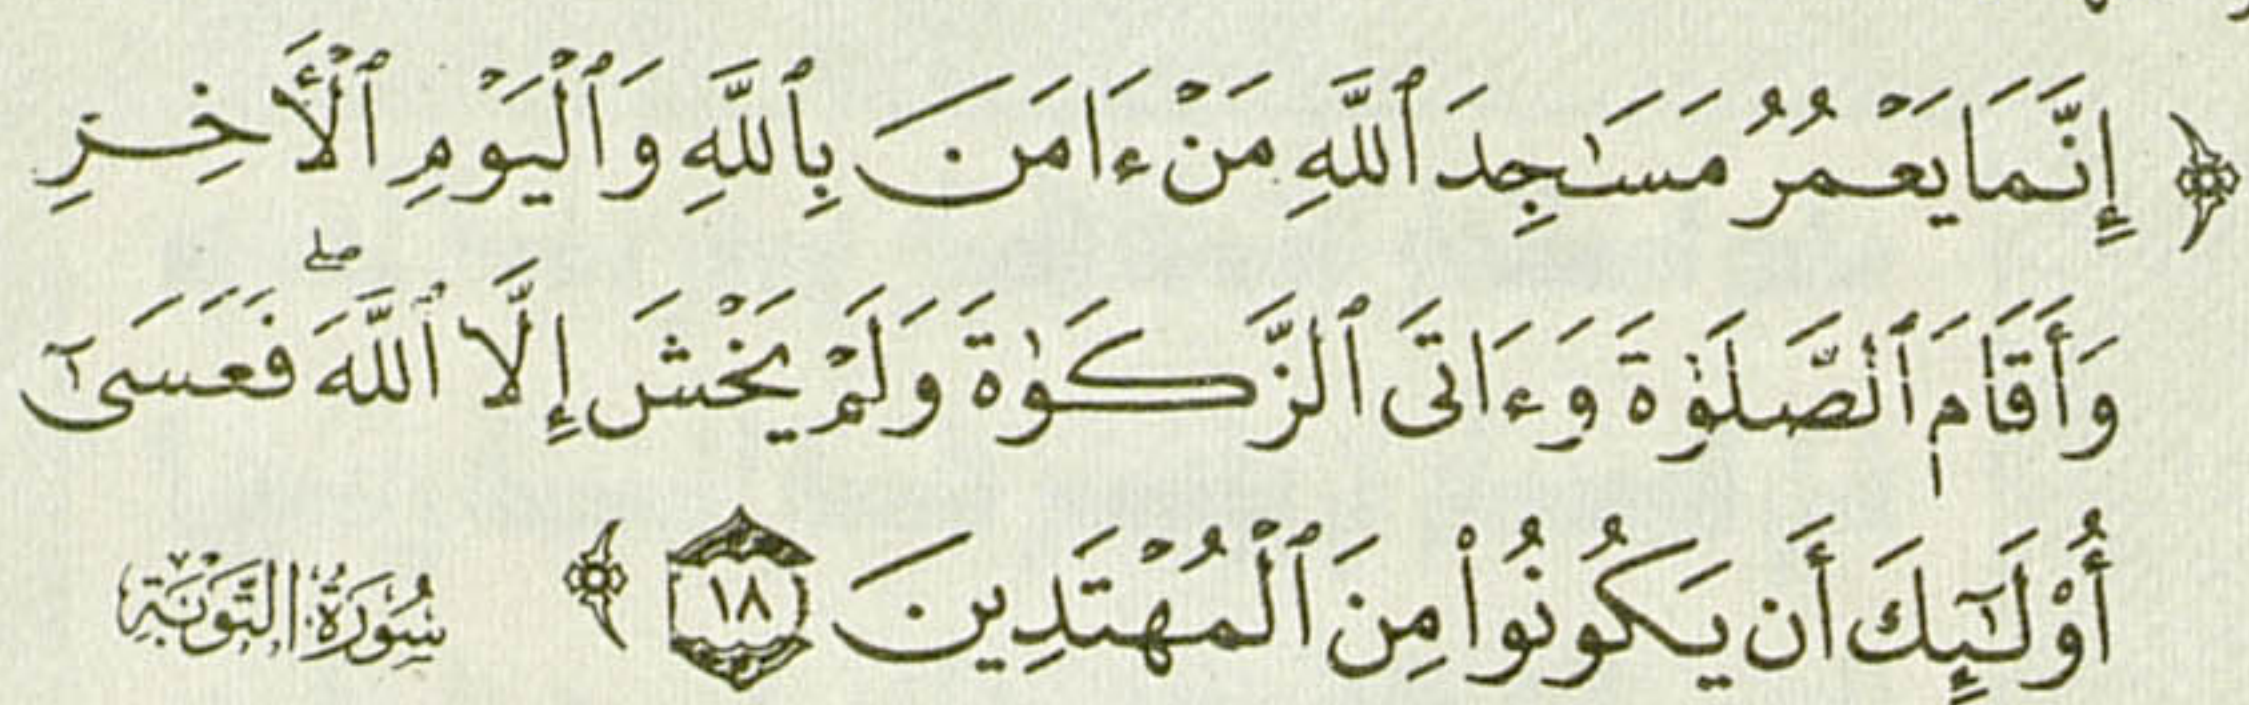 ﴿ إِنَّمَا يَعْمُرُ مَسَـٰجِدَ ٱللَّهِ مَنْ ءَامَنَ بِٱللَّهِ وَٱلْيَوْمِ ٱلْأَخِرِ
وَأَقَامَ ٱلصَّلَوٰةَ وَءَاتَى ٱلزَّكَوٰةَ وَلَمْ يَخْشَ إِلَّا ٱللَّهَ ۖ فَعَسَىٰٓ
أُوْلَـٰٓئِكَ أَن يَكُونُوا۟ مِنَ ٱلْمُهْتَدِينَ ١٨ ﴾ سُورَةُ التَّوْبَةِ